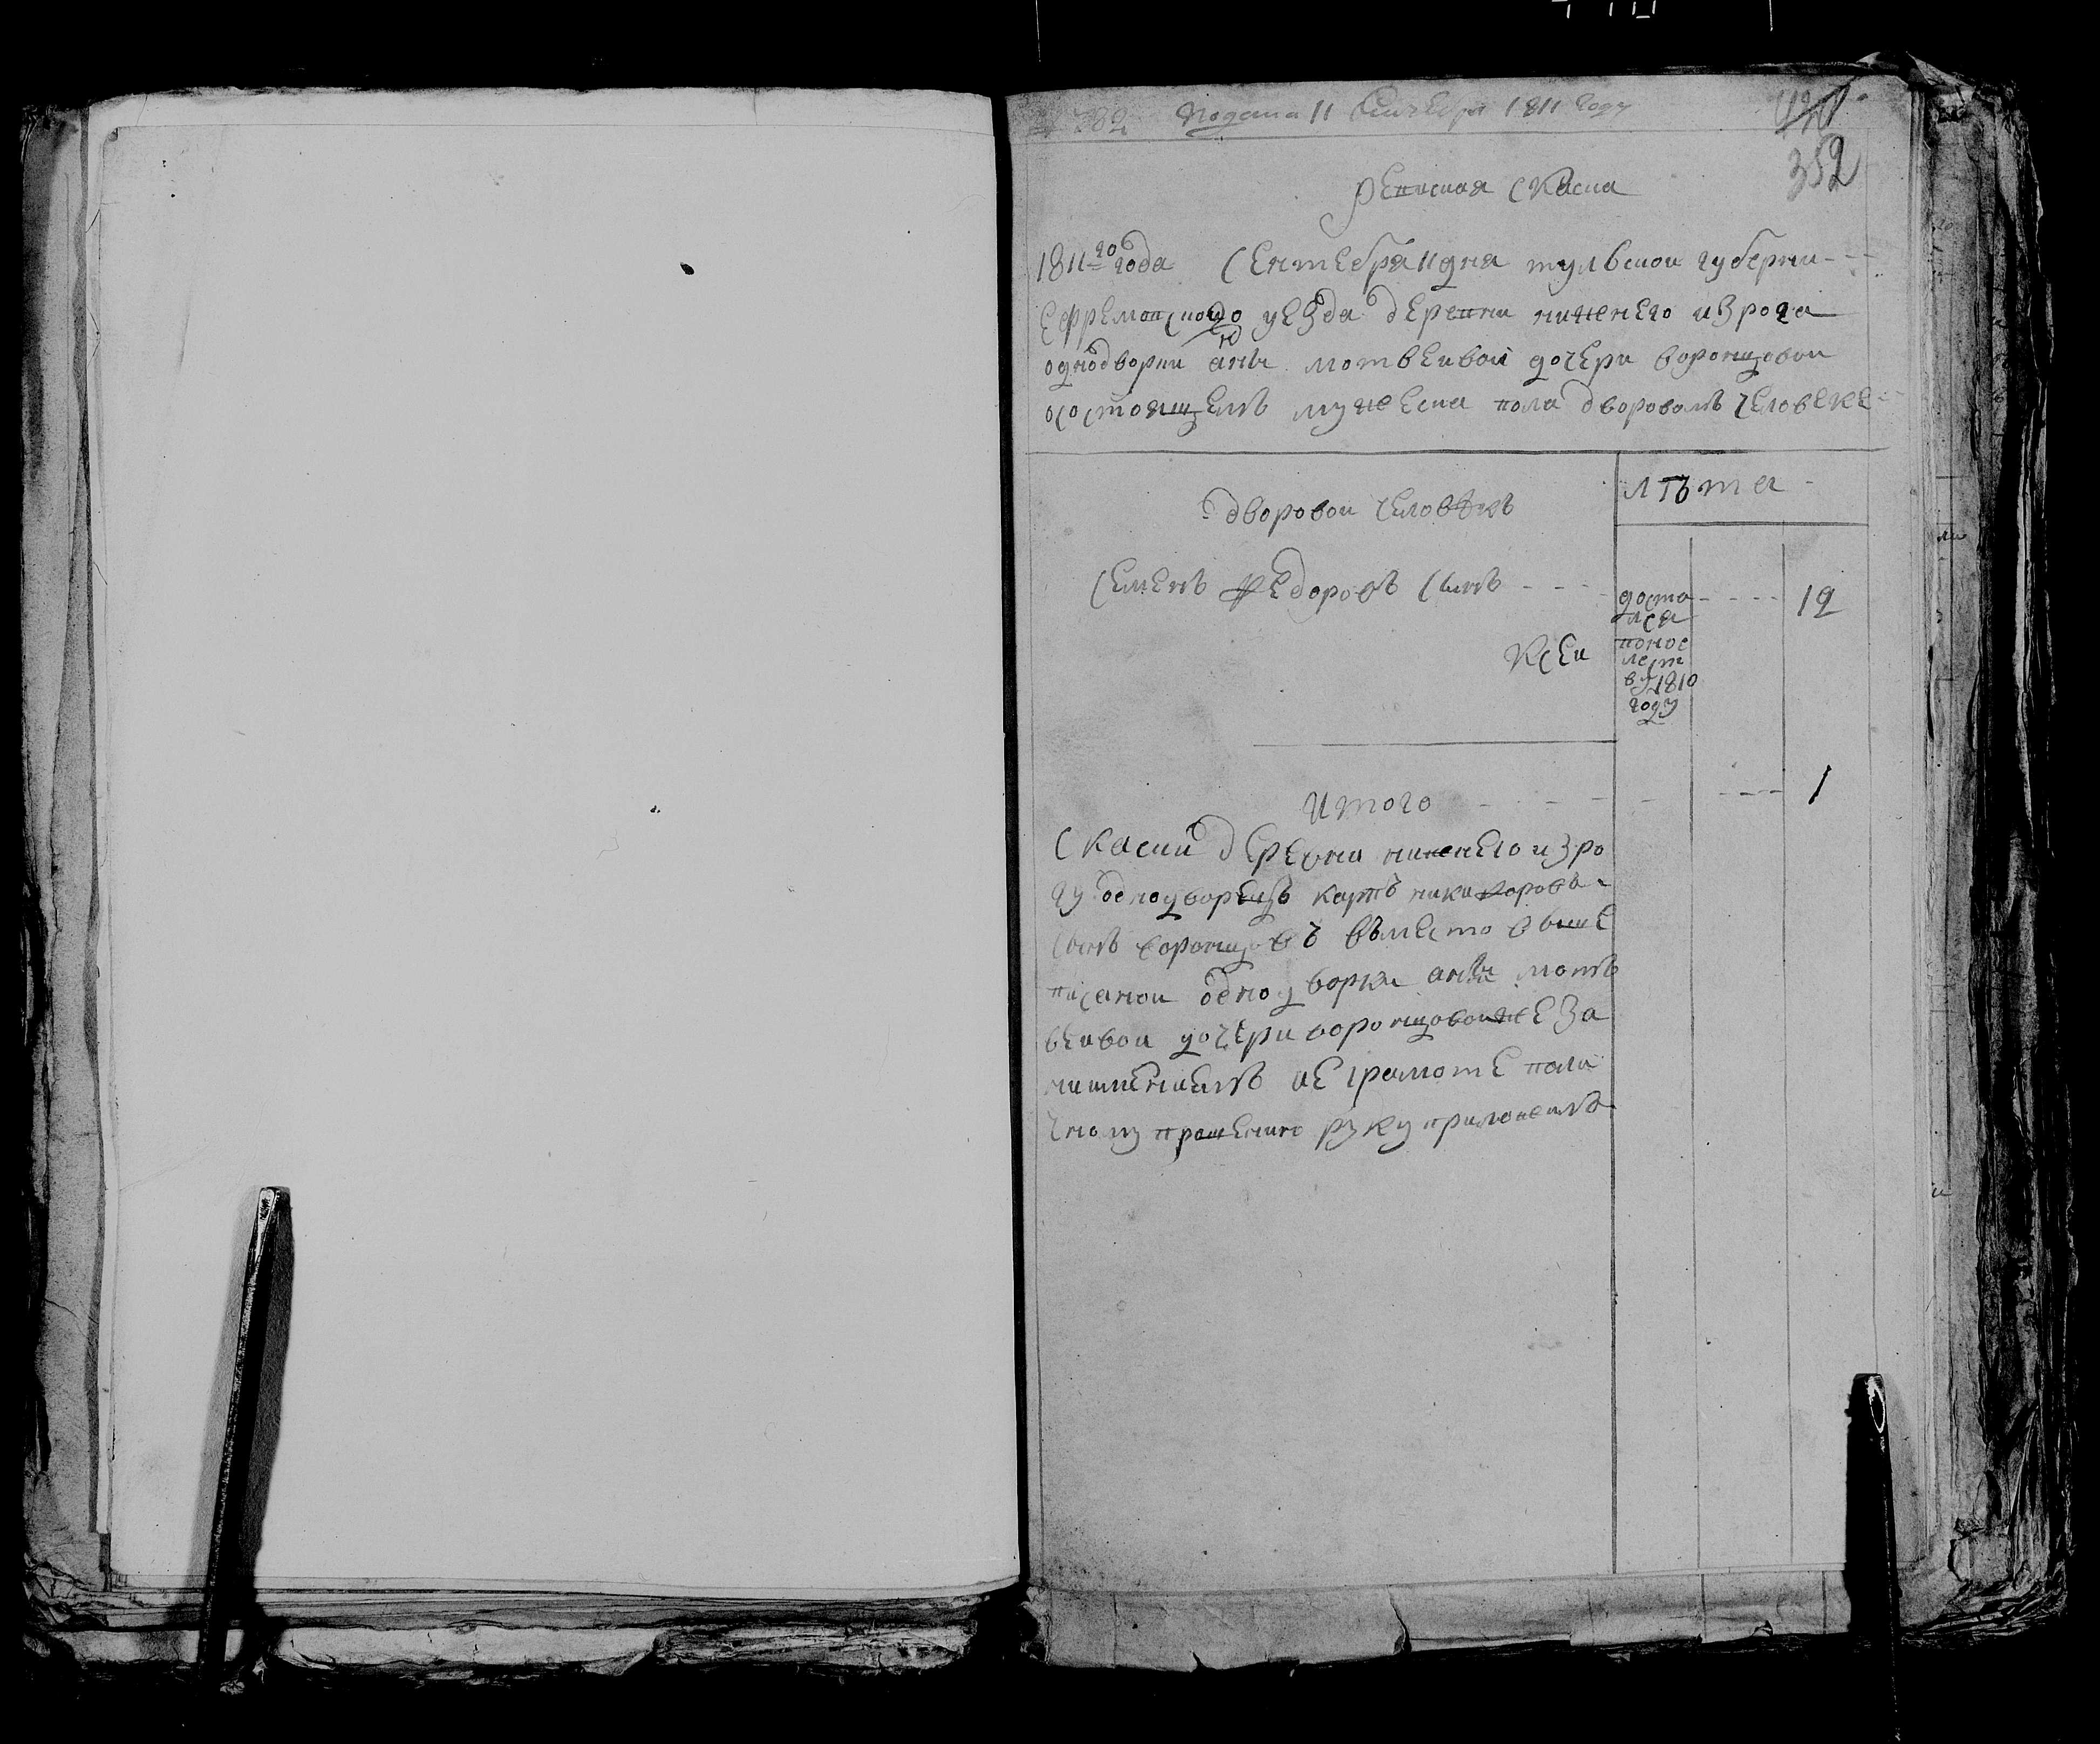 Подана 11 Сентября 1811 году
352
ревиская скаска
1811 го года Сентебря 11 дня тулской губерни
Ефремовского уезда деревни нижнего изрога
однодворки аны матвеивой дочери воронцовои
осостоящемъ мужеска пола дворовомъ человеке
лѣта
дворовои человѣкъ
Семенъ Федоровъ сынъ
доста
лся
понос
лест
ву 1810
году
19
Ксеи
итого
1
Скаски деревни нижнего изро
гу однодворецъ карпъ никифоровъ
сынъ воронцовъ въместо выше
писанои однодворки аны матъ
веивои дочери воронцовои же за
неимениемъ ее грамоте пали
чному прошению руку приложилъ